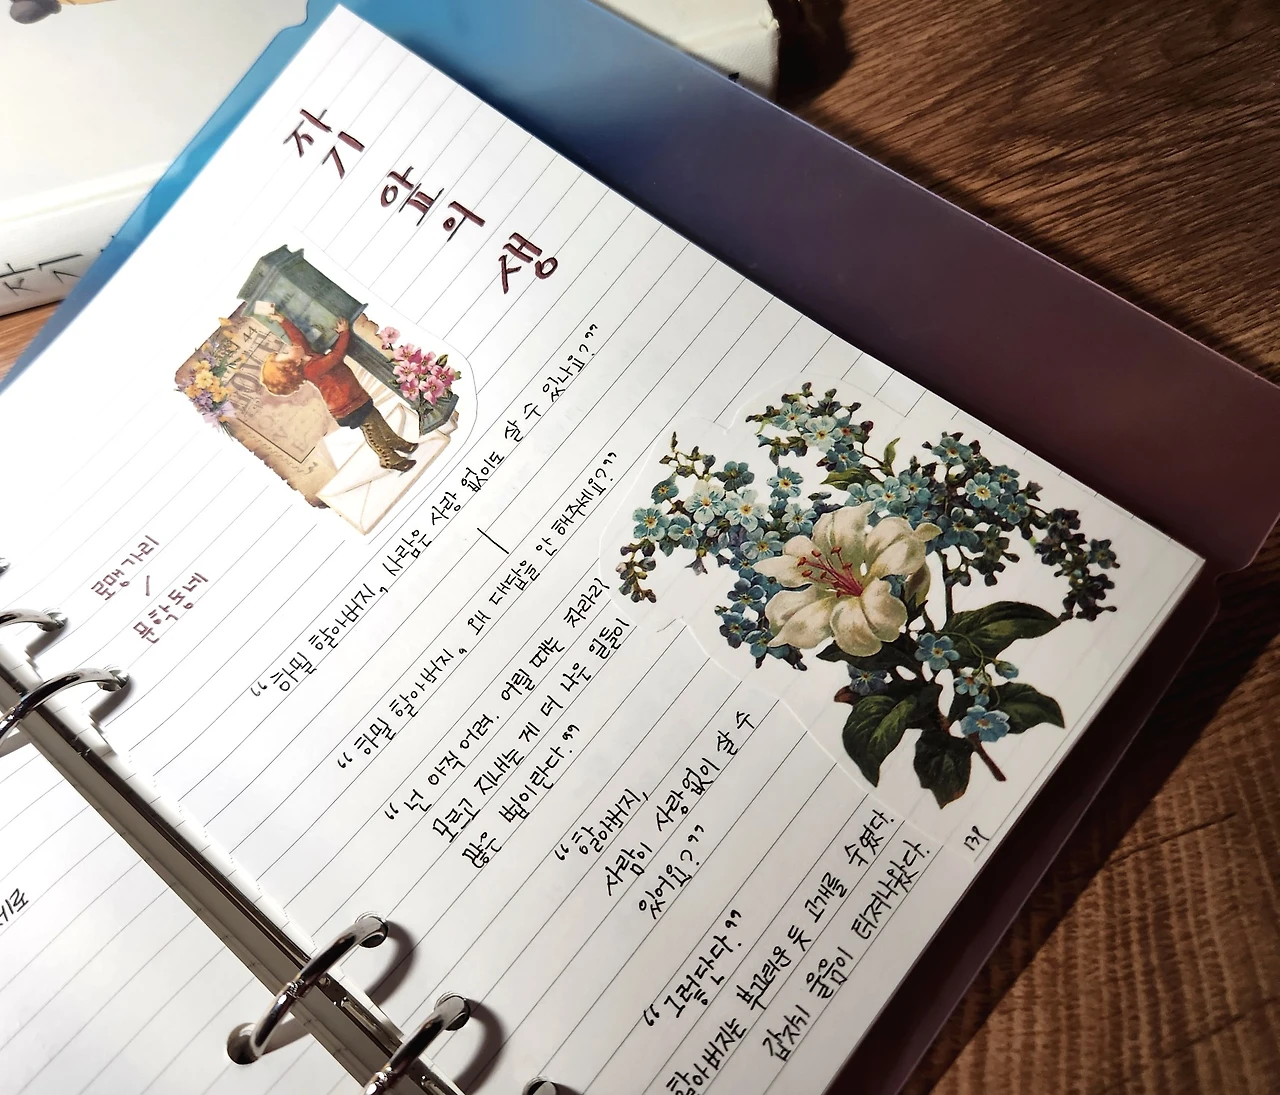 자기 앞의 생
로맹 가리
/
문학동네
“하밀 할아버지, 사람은 사랑 없이도 살 수 있나요?”
“하밀 할아버지. 왜 대답을 안 해주세요?”
“넌 아직 어려. 어릴 때는 차라리
모르고 지내는 게 더 나은 일들이
많은 법이란다.”
“할아버지,
사람이 사랑 없이 살 수
있어요?”
“그렇단다.”
할아버지는 부끄러운 듯 고개를 숙였다.
갑자기 울음이 터져나왔다.
자기